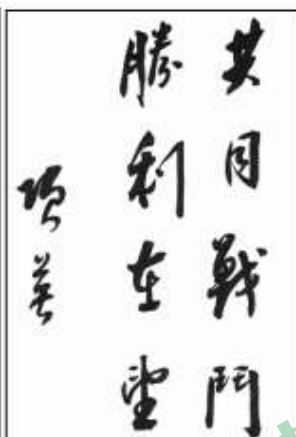 共同戰鬥
勝利在望
項英